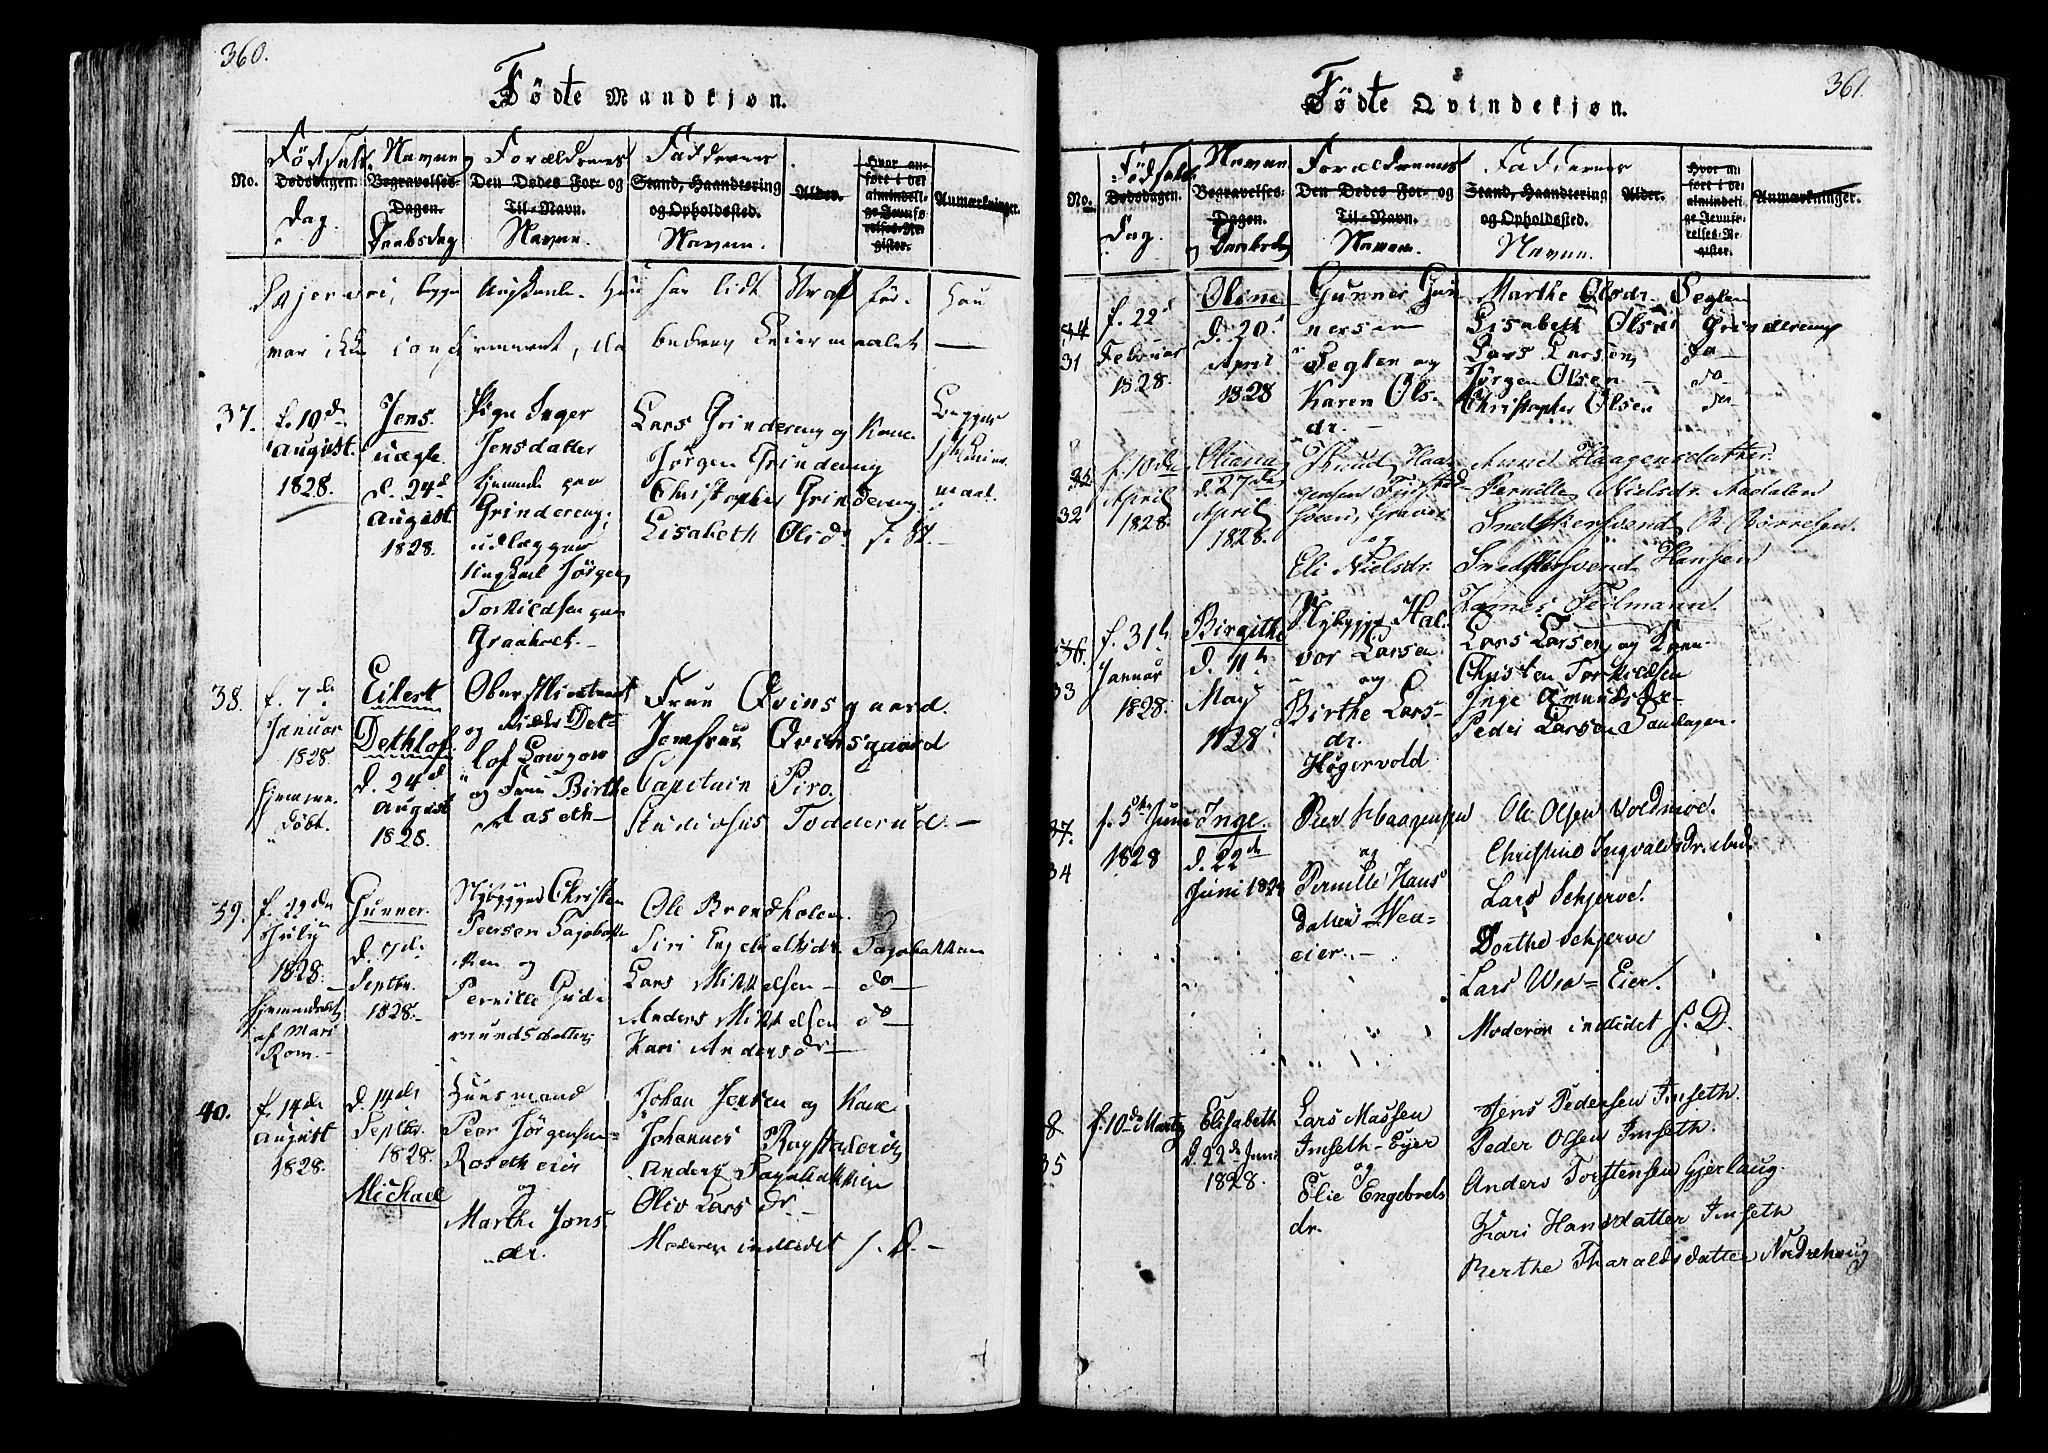 360.
Fødte Mandkjøn.
No.
Fødsels
Dødsdagen.
Dag.
Navn og
Begravelses-
Dagen.
Daabsdag
Forældrenes
Den Dødes For- og
Til-Navn.
Navn.
Faddernes
Stand, Haandtering
og Opholdssted.
Navn.
Alder.
Hvor an-
ført i det
almindeli-
ge Jevnfø-
relses-Re-
gister.
Anmærkninger.
begge har lidt Straf for. Hun
var ikke confirmeret, da
37.
f. 19de
August.
1828.
Jens.
uægte.
d. 24d
August
1828.
Pige Inger
Jensdatter
hjemme paa
Grindereng;
udlægger
Ungkarl Jørgen
Torkildsen paa
Graaholt.
Lars Grindereng og Kone
Jørgen Grindereng
Christopher Grindereng
Lisabeth Olsdr
Begges
1ste Leier-
maal.
38.
f. 7de
Januar
1828.
Hjemme-
døbt.
Eilert
Dethlof.
d. 24d
August
1828.
Oberstlieutenant
og Ridder Det-
lof
og Frue Birthe
Aaseth
Frue Qvinsgaard.
Jomfrue Qvinsgaard
Capitain Piro.
Studiosus Todderud.
39.
f. 29de
July
1828.
Hjemmedøbt
af Mari
Rom.
Gunner.
d. 7de
Septbr.
1828.
Nybygger Christen
Peersen Pagebak-
ken og
Pernille Gud-
mundsdatter
Ole Brendholen
Siri Engebretsdr
Lars Mikkelsen
Anders Mikkelsen
Kari Andersdr
Pagebakken
do
do
40.
f. 14de
August
1828.
d. 14de
Septbr.
1828.
Michael
Huusmand
Peer Jørgensen
Roseth eier
og
Marthe Jons
dr.
Johan Jensen og Kone
Johannes
Anders Pagebakken
Oliv Larsdr.
Moderen indledet s. D.
361.
Fødte Qvindekjøn.
No.
Fødsels
Dødsdagen.
Dag.
Navn
Begravelses-
Dagen.
og Daabsdag
Forældrenes
Den Dødes For- og
Til-Navn.
Navn.
Faddernes
Stand, Haandtering
og Opholdssted.
Navn.
Alder.
Hvor an-
ført i det
almindeli-
ge Jevnfø-
relses-Re-
gister.
Anmærkninger.
34
31
f. 22d
Februar
1828.
Oline
d. 20d
April
1828
Gunner Gun
nersen
Seglen og
Karen Ols-
dr.
Marthe Olsdr. Seglen
Lisabeth Olsdr Grindereng
Lars Larsen do
Jørgen Olsen do
Christopher Olsen do
35
32
f. 10de
April
1828.
Oliana
d. 27de
April
1828.
og
Eli Nielsdr.
Anne Haagensdatter.
Pernille Nielsdr. Aadalen
Smedsvend B. Børresen.
Smedsvend Hansen
Hannes Feilmann.
36.
33
f. 31te
Januar
1828.
Birgithe
d. 11te
May
1828
Nybygger Hal-
vor Larsen
og
Birthe Lars-
dr.
Høgervold
Lars Larsen og Kone
Christen Torkildsen
Inge Amundsdr
Peder Larsen
37.
34
f. 5te Juni
1828
Inge.
d. 22de
Juni 1828
Peer Haagensen
og
Pernille Hans
datter Wea-
eier.
Ole Olsen Voldmoe.
Christine Ingvaldsdr. ibid.
Lars Schjerve.
Dorthe Schjerve
Lars Wea-Eier.
Moderen indledet s. D.
8.
35
f. 10de Martz
Elisabeth
d. 22de Juni
1828.
Lars Massen
Imseth-Eyer
og
Elie Engebrets
dr.
Jens Pedersen Imseth.
Peder Olsen Imseth.
Anders Torstensen Gjerlaug.
Kari Hansdatter Imseth
Berthe Tharaldsdatter Nordrehaug